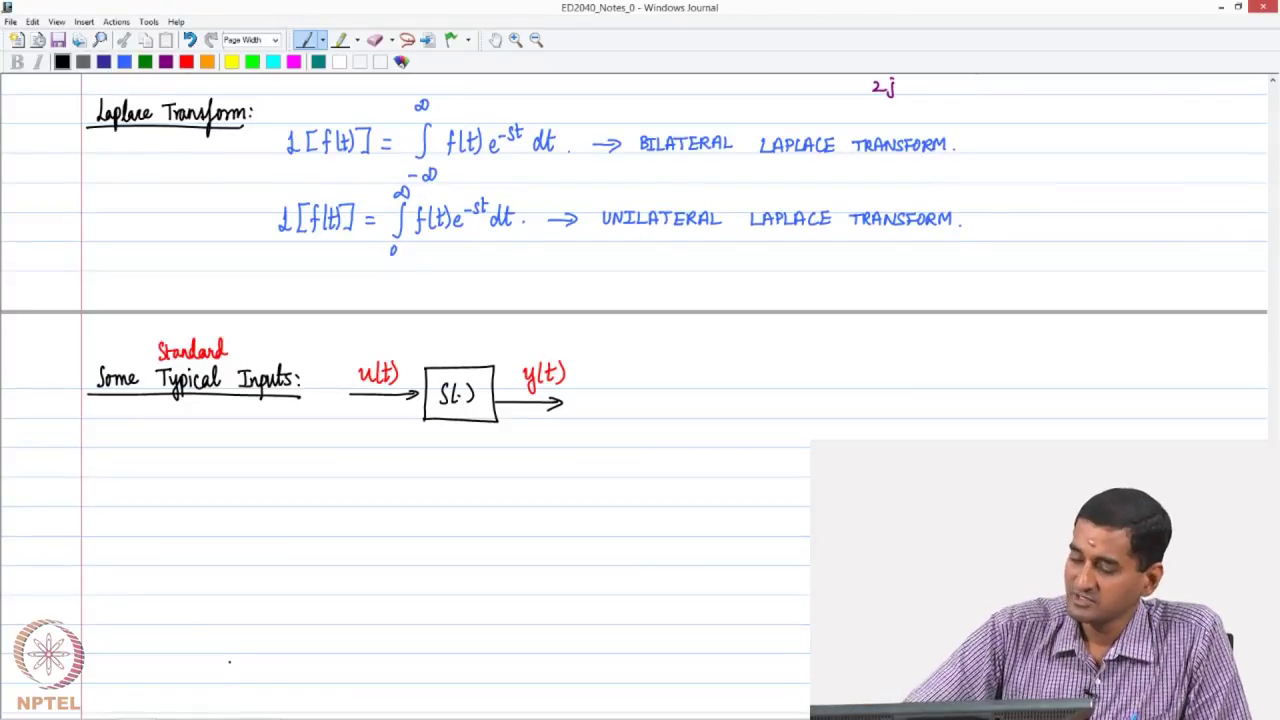 ED2040_Notes_0 - Windows Journal
File Edit View Insert Actions Tools Help
Page Width
B I
2j
Laplace Transform:
ℒ[f(t)] = ∫_{-∞}^{∞} f(t) e^{-st} dt. → BILATERAL LAPLACE TRANSFORM.
ℒ[f(t)] = ∫_{0}^{∞} f(t) e^{-st} dt. → UNILATERAL LAPLACE TRANSFORM.
Standard
Some Typical Inputs: u(t) S(·) y(t)
NPTEL